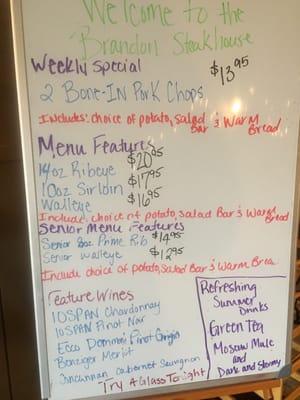 Welcome to the
Brandon Steakhouse
Weekly Special
$13.95
2 Bone-In Pork Chops
Includes: choice of potato, salad
Bar & Warm
Bread
Menu Features
14oz Ribeye $20.95
10oz Sirloin $17.95
Walleye $16.95
Include: choice of potato, salad Bar & Warm
Bread
Senior Menu Features
Senior 8oz Prime Rib $14.95
Senior Walleye $12.95
Include choice of potato, Salad Bar & Warm Brea
Feature Wines
10SPAN Chardonnay
10SPAN Pinot Noir
Ecco Domani Pinot Grigio
Benziger Merlot
Cabernet Sauvignon
Try A Glass Tonight
Refreshing
Summer
Drinks
Green Tea
Moscow Mule
and
Dark and Stormy